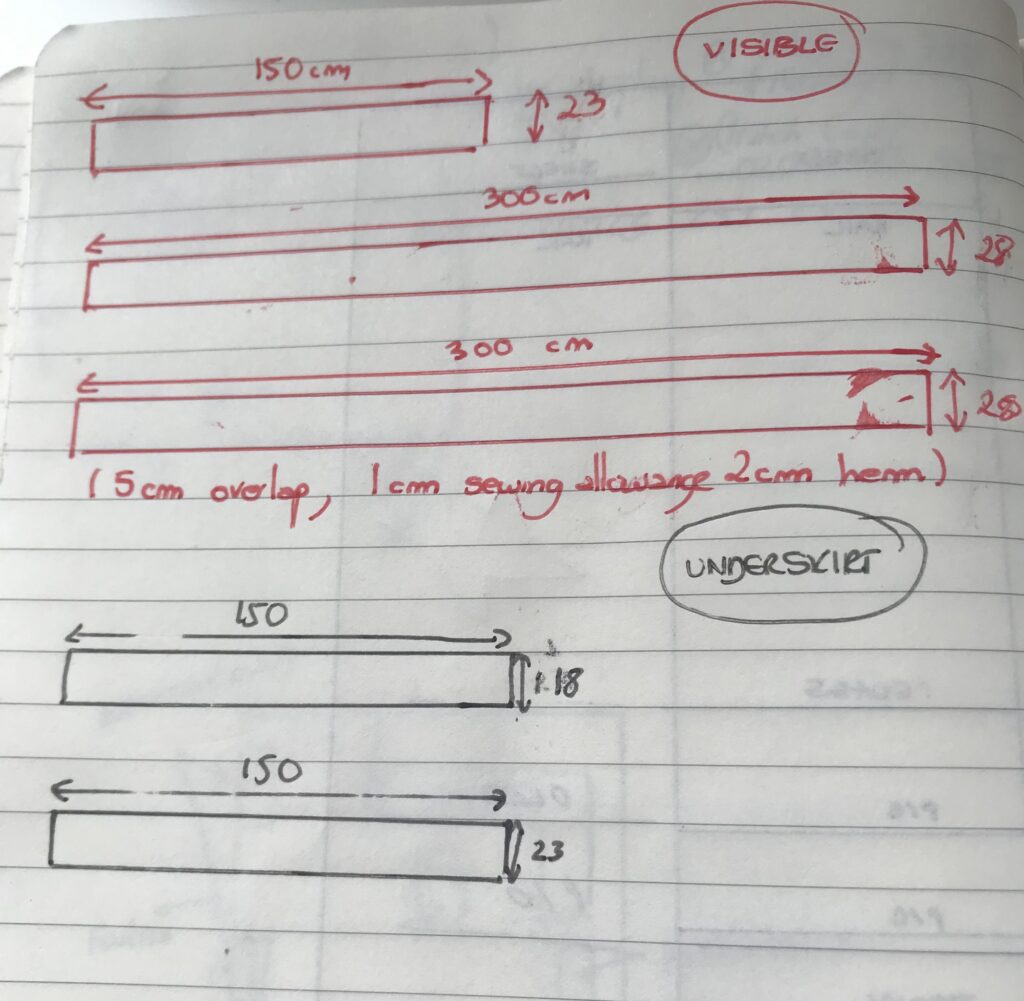 VISIBLE
150cm
23
300cm
28
300 cm
28
(5cm overlap, 1cm sewing allowance 2cm hem)
UNDERSKIRT
150
18
150
23